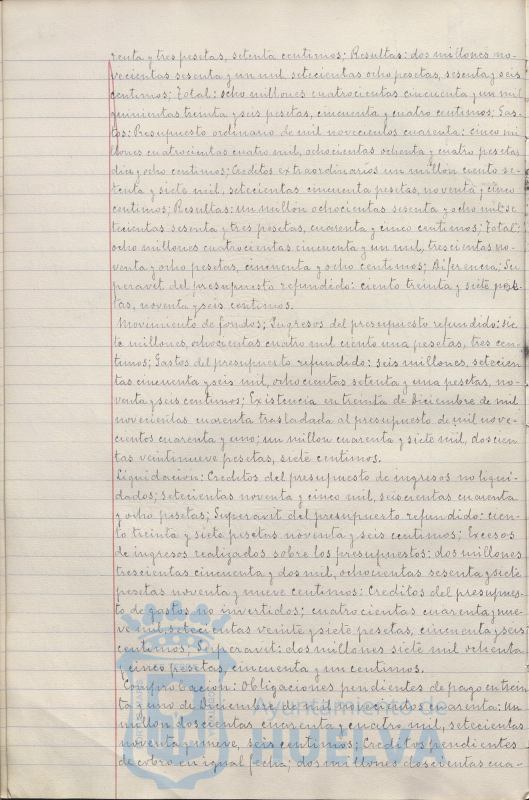 renta y tres pesetas, setenta centimos; Resultas: dos millones no-
vecientas sesenta y un mil setecientas ocho pesetas, sesenta y seis
centimos; Total: ocho millones cuatrocientas cincuenta y un mil
quinientas treinta y seis pesetas, cincuenta y cuatro centimos; Gas-
tos: Presupuesto ordinario de mil novecientos cuarenta: cinco mi-
llones cuatrocientas cuatro mil, ochocientas ochenta y cuatro pesetas
diez y ocho centimos; Creditos extraordinarios un millón ciento se-
tenta y siete mil, setecientas cincuenta pesetas, noventa y cinco
centimos; Resultas: un millón ochocientas sesenta y ocho mil se-
tecientas sesenta y tres pesetas, cuarenta y cinco centimos; Total:
ocho millones cuatrocientas cincuenta y un mil, trescientas no-
venta y ocho pesetas, cincuenta y ocho centimos; Diferencia; Su
peravit del presupuesto refundido: ciento treinta y siete pese-
tas, noventa y seis centimos.
Movimiento de fondos; Ingresos del presupuesto refundido: sie
te millones, ochocientas cuatro mil ciento una pesetas, tres cen-
timos; Gastos del presupuesto refundido: seis millones, setecien
tas cincuenta y seis mil, ochocientas setenta y una pesetas, no-
venta y seis centimos; Existencia en treinta de Diciembre de mil
novecientas cuarenta trasladada al presupuesto de mil nove-
cientos cuarenta y uno; un millon cuarenta y siete mil, doscien
tas veintinueve pesetas, siete centimos.
Liquidacion: Creditos del presupuesto de ingresos no liqui-
dados; setecientas noventa y cinco mil, seiscientas cuarenta
y ocho pesetas; Superavit del presupuesto refundido: cien-
to treinta y siete pesetas noventa y seis centimos; Excesos
de ingresos realizados sobre los presupuestos: dos millones
trescientas cincuenta y dos mil, ochocientas sesenta y siete
pesetas noventa y nueve centimos: Creditos del presupues-
to de gastos no invertidos; cuatrocientas cuarenta y nue-
ve mil, setecientas veinte y siete pesetas, cincuenta y seis
centimos; Superavit: dos millones siete mil ochenta
y cinco pesetas, cincuenta y un centimos.
Comprobacion: Obligaciones pendientes de pago en trein
ta y uno de Diciembre de mil novecientos cuarenta: Un
millon doscientas cuarenta y cuatro mil, setecientas
noventa y nueve, seis centimos; Creditos pendientes
de cobro en igual fecha; dos millones doscientas cua-
Ayuntamiento de
HUELVA